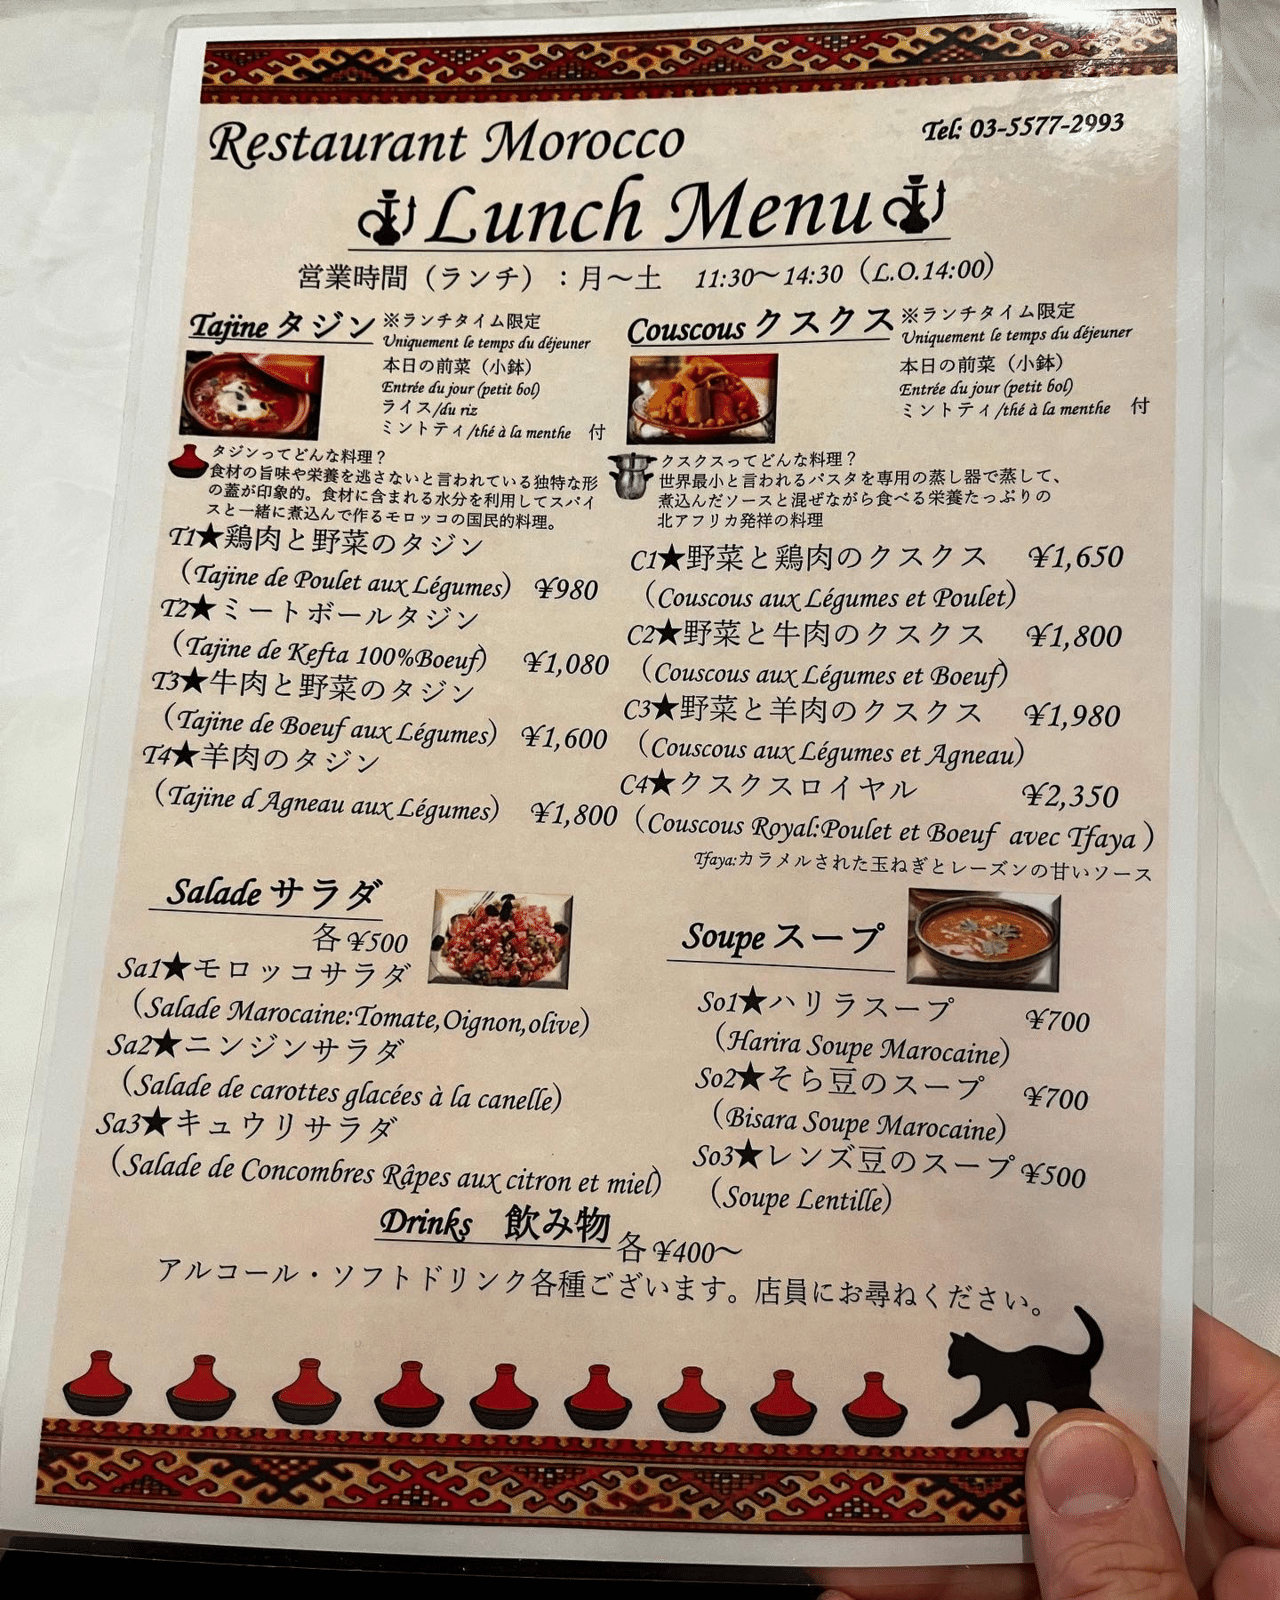 Restaurant Morocco
Tel: 03-5577-2993
Lunch Menu
営業時間（ランチ）：月～土 11:30～14:30（L.O.14:00）
Tajine タジン
※ランチタイム限定
Uniquement le temps du déjeuner
本日の前菜（小鉢）
Entrée du jour (petit bol)
ライス/du riz
ミントティ/thé à la menthe 付
タジンってどんな料理？
食材の旨味や栄養を逃さないと言われている独特な形
の蓋が印象的。食材に含まれる水分を利用してスパイ
スと一緒に煮込んで作るモロッコの国民的料理。
T1★鶏肉と野菜のタジン
（Tajine de Poulet aux Légumes） ¥980
T2★ミートボールタジン
（Tajine de Kefta 100%Boeuf） ¥1,080
T3★牛肉と野菜のタジン
（Tajine de Boeuf aux Légumes） ¥1,600
T4★羊肉のタジン
（Tajine d Agneau aux Légumes） ¥1,800
Couscous クスクス
※ランチタイム限定
Uniquement le temps du déjeuner
本日の前菜（小鉢）
Entrée du jour (petit bol)
ミントティ/thé à la menthe 付
クスクスってどんな料理？
世界最小と言われるパスタを専用の蒸し器で蒸して、
煮込んだソースと混ぜながら食べる栄養たっぷりの
北アフリカ発祥の料理
C1★野菜と鶏肉のクスクス ¥1,650
（Couscous aux Légumes et Poulet）
C2★野菜と牛肉のクスクス ¥1,800
（Couscous aux Légumes et Boeuf）
C3★野菜と羊肉のクスクス ¥1,980
（Couscous aux Légumes et Agneau）
C4★クスクスロイヤル ¥2,350
（Couscous Royal:Poulet et Boeuf avec Tfaya）
Tfaya:カラメルされた玉ねぎとレーズンの甘いソース
Salade サラダ
各 ¥500
Sa1★モロッコサラダ
（Salade Marocaine:Tomate,Oignon,olive）
Sa2★ニンジンサラダ
（Salade de carottes glacées à la canelle）
Sa3★キュウリサラダ
（Salade de Concombres Râpes aux citron et miel）
Soupe スープ
So1★ハリラスープ ¥700
（Harira Soupe Marocaine）
So2★そら豆のスープ ¥700
（Bisara Soupe Marocaine）
So3★レンズ豆のスープ ¥500
（Soupe Lentille）
Drinks 飲み物 各 ¥400～
アルコール・ソフトドリンク各種ございます。店員にお尋ねください。